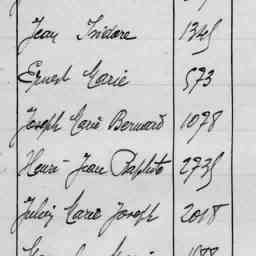 Jean Isidore 1345
Ernest Marie 573
Joseph Marie Bernard 1098
Henri-Jean Baptiste 2735
Julien Marie Joseph 2018